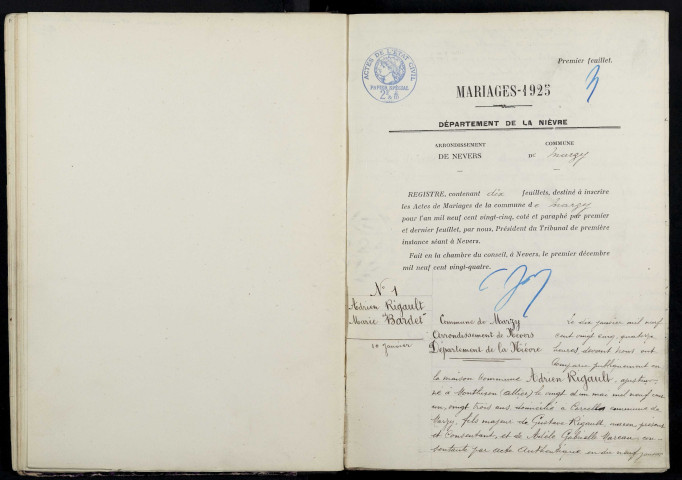 Premier feuillet.
3
ACTES DE L'ÉTAT CIVIL
PAPIER SPÉCIAL
MARIAGES-1925
DÉPARTEMENT DE LA NIÈVRE
ARRONDISSEMENT
DE NEVERS
COMMUNE
DE Marzy
REGISTRE, contenant dix feuillets, destiné à inscrire
les Actes de Mariages de la commune de Marzy
pour l'an mil neuf cent vingt-cinq, coté et paraphé par premier
et dernier feuillet, par nous, Président du Tribunal de première
instance séant à Nevers.
Fait en la chambre du conseil, à Nevers, le premier décembre
mil neuf cent vingt-quatre.
N° 1
Adrien Rigault
Marie Bardet
10 janvier
Commune de Marzy
Arrondissement de Nevers
Département de la Nièvre
Le dix janvier mil neuf
cent vingt cinq, quatorze
heures, devant nous ont
comparu publiquement en
la maison commune Adrien Rigault,
né à (Allier) le vingt et un mai mil neuf cent
un, vingt trois ans domicilié à commune de
Marzy, fils majeur de Gustave Rigault, présent
et consentant, et de Adèle Gabrielle Moreau, con-
sentante par acte authentique en du neuf janvier